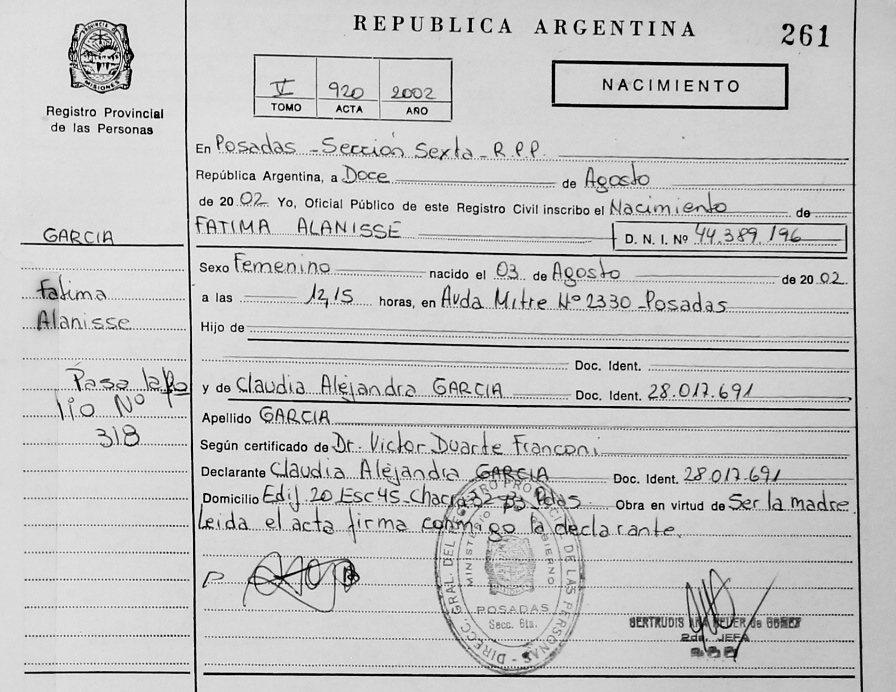 REPUBLICA ARGENTINA
261
PROVINCIA DE MISIONES
Registro Provincial
de las Personas
V 920 2002
TOMO ACTA AÑO
NACIMIENTO
En Posadas - Sección Sexta - R.P.P.
República Argentina, a Doce de Agosto
de 2002 Yo, Oficial Público de este Registro Civil inscribo el Nacimiento de
FATIMA ALANISSE D. N. I. Nº 44.389.196
GARCIA
Sexo Femenino nacido el 03 de Agosto de 2002
Fatima
Alanisse
a las 12,15 horas, en Avda Mitre Nº 2330 - Posadas
Hijo de
Doc. Ident.
Pasa
Nº
318
y de Claudia Alejandra GARCIA Doc. Ident. 28.017.691
Apellido GARCIA
Según certificado de Dr. Victor Duarte Franconi
Declarante Claudia Alejandra GARCIA Doc. Ident. 28.017.691
Domicilio Edif. 20 Esc 45 - Chacra 32-33 Pdas Obra en virtud de Ser la madre
Leida el acta firma conmigo la declarante.
DIRECC. GRAL. DEL REGISTRO PROVINCIAL DE LAS PERSONAS
MINISTERIO DE GOBIERNO
POSADAS
Secc. 6ta.
GERTRUDIS de GOMEZ
2da. JEFA